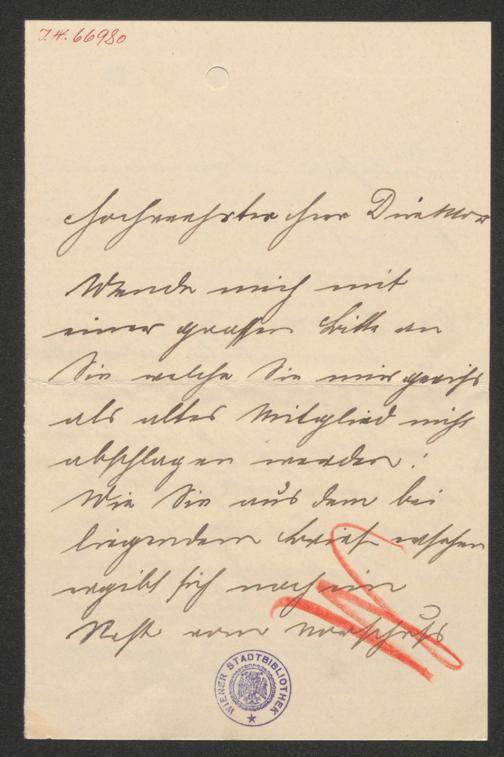 I.N. 66980
Hochverehrter Herr Direktor
Wende mich mit
einer grossen Bitte an
Sie welche Sie mir gewiss
als altes Mitglied nicht
abschlagen werden!
Wie Sie aus dem bei
liegendem Brief ersehen
ergibt sich noch ein
Rest vom Vorschuss
WIENER STADTBIBLIOTHEK